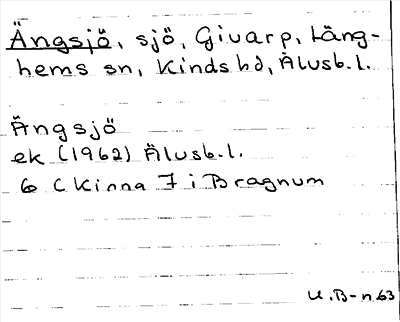 Ängsjö, sjö, Givarp, Läng-
hems sn, Kinds hd, Älvsb. l.
Ängsjö
ek (1962) Älvsb. l.
6 C Kinna 7 i Bragnum
U.B-n 63